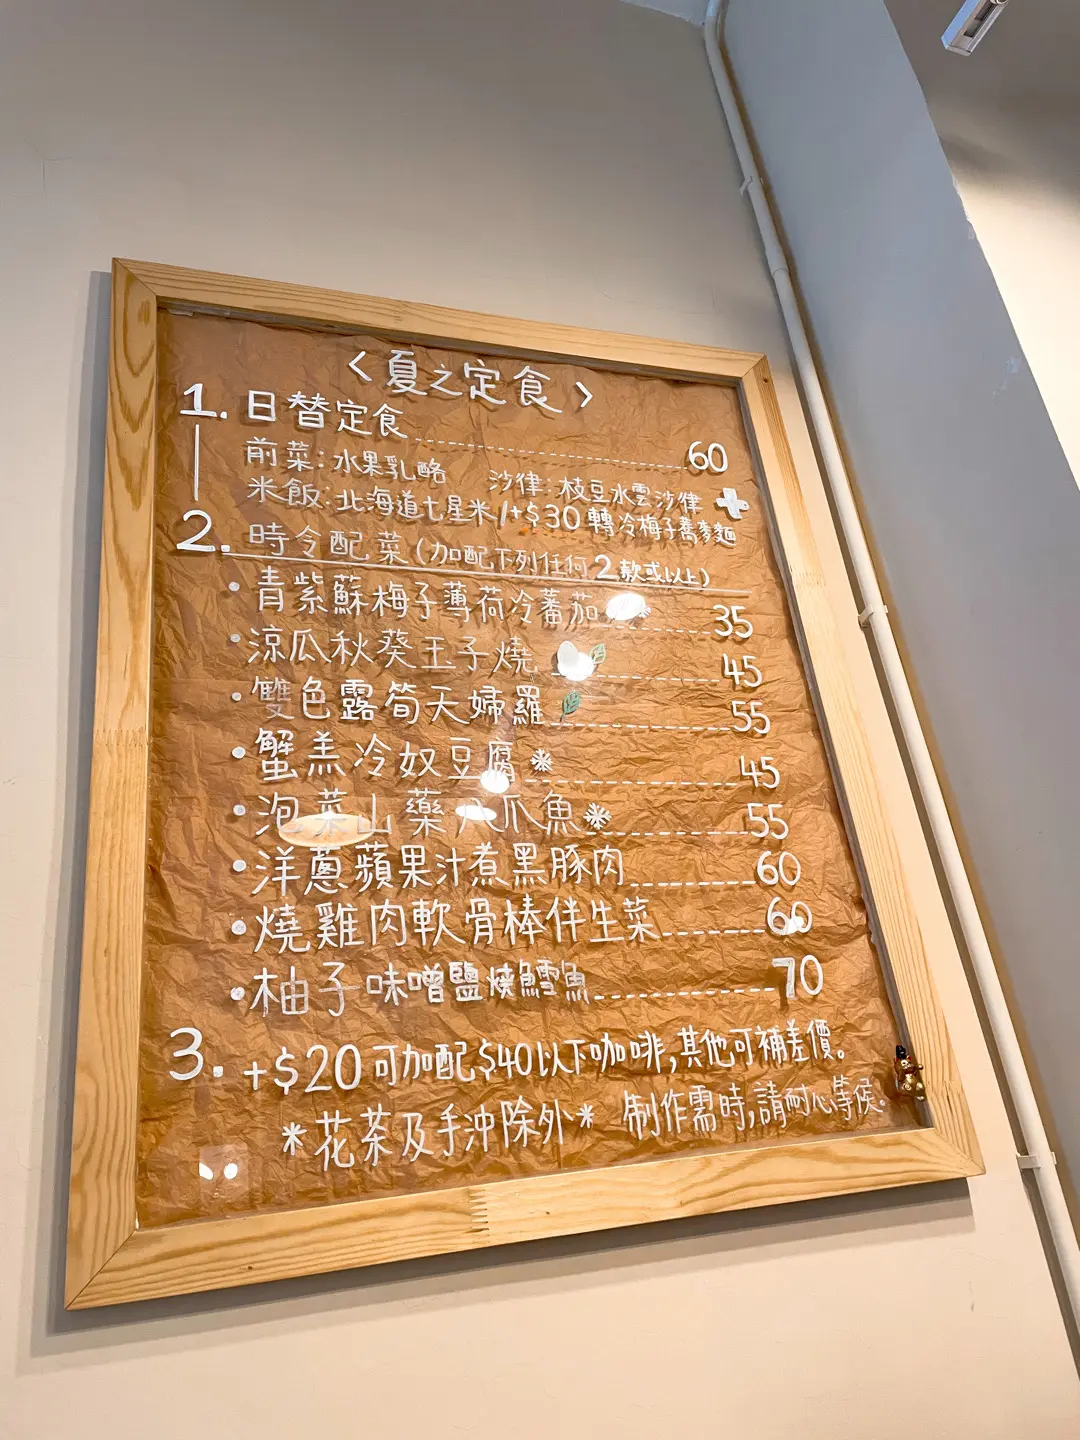 〈夏之定食〉
1. 日替定食 60
前菜：水果乳酪 沙律：枝豆水雲沙律
米飯：北海道七星米/+$30轉冷梅子蕎麥麵
2. 時令配菜(加配下列任何2款或以上)
・青紫蘇梅子薄荷冷蕃茄 35
・涼瓜秋葵玉子燒 45
・雙色露筍天婦羅 55
・蟹羔冷奴豆腐 45
・泡菜山藥八爪魚 55
・洋蔥蘋果汁煮黑豚肉 60
・燒雞肉軟骨棒伴生菜 60
・柚子味噌鹽燒鱈魚 70
3. +$20可加配$40以下咖啡,其他可補差價。
*花茶及手沖除外* 制作需時,請耐心等候。